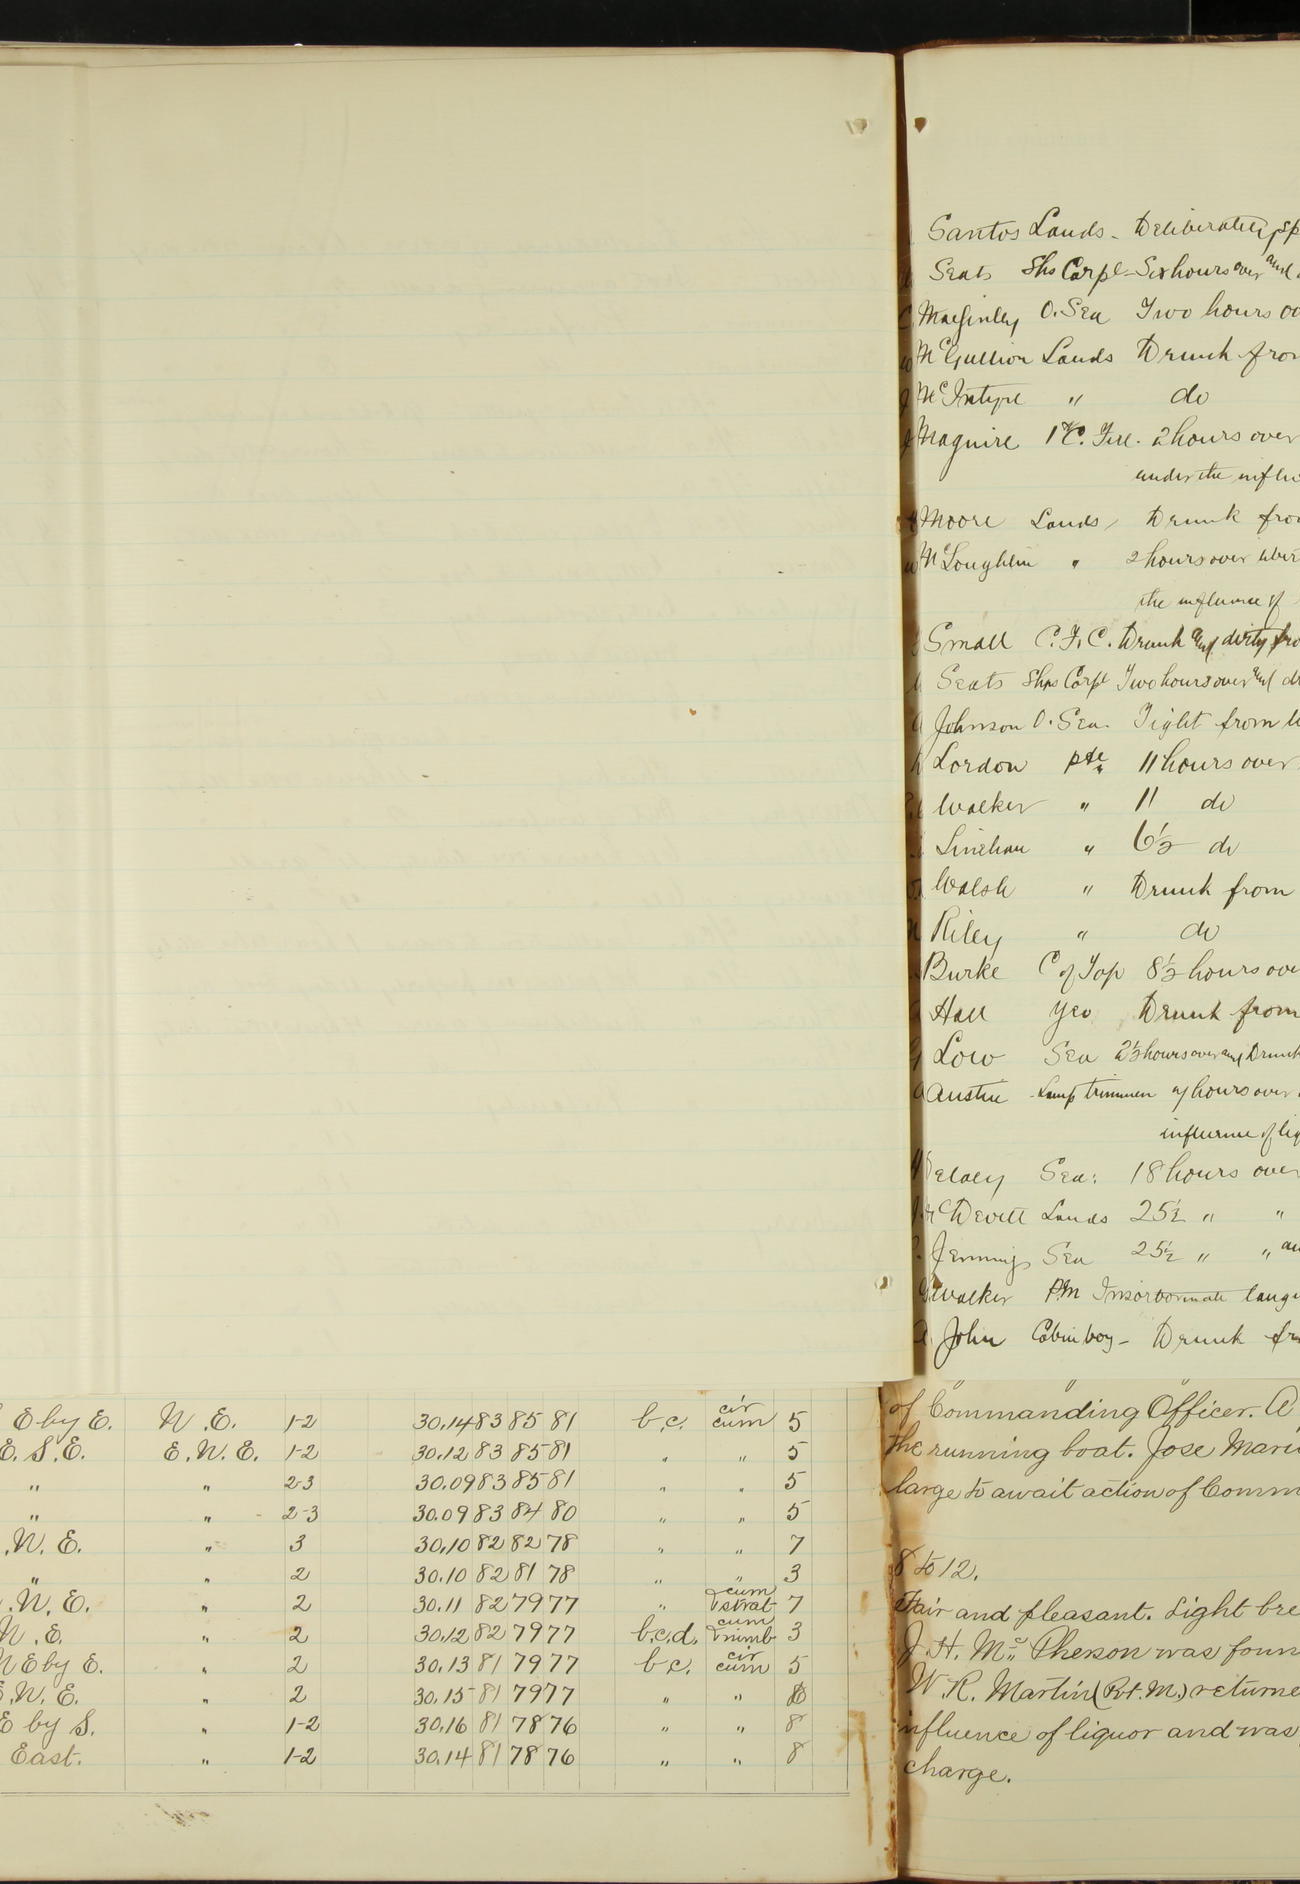 Santos Lands - Deliberately
Seats Shs Corpl - Six hours over and
MacGinley O. Sea Two hours
McGullion Lands Drunk from
McIntyre " do
Maguire 1"C. Fire. 2 hours over
under the
Moore Lands, Drunk
McLoughlin " 2 hours over
the influence of
Small C.F.C. Drunk and dirty
Seats Shps Corpl Two hours over and
Johnson O. Sea. Tight from
Lordon pte 11 hours over
Walker " 11 do
Linehan " 6½ do
Walsh " Drunk from
Riley " do
Burke C of Top 8½ hours
Hall Yeo Drunk from
Low Sea 2½ hours over and Drunk
Austin Lamp trimmer hours over
influence of
Delaey Sea: 18 hours over
McDevitt Lands 25½ " "
Jennings Sea 25½ " "
Walker P.M
John Cabin boy - Drunk
E by E. N.E. 1-2 30.14 83 85 81 b.c. cir cum 5
E.S.E. E.N.E. 1-2 30.12 83 85 81 " " 5
" " 2-3 30.09 83 85 81 " " 5
" " 2-3 30.09 83 84 80 " " 5
.N.E. " 3 30.10 82 82 78 " " 7
" " 2 30.10 82 81 78 " " 3
.N.E. " 2 30.11 82 79 77 " cum & strat 7
N.E. " 2 30.12 82 79 77 b.c.d. cum & nimb 3
NE by E. " 2 30.13 81 79 77 b.c. cir cum 5
E.N.E. " 2 30.15 81 79 77 " "
E by S. " 1-2 30.16 81 78 76 " " 8
East. " 1-2 30.14 81 78 76 " " 8
of Commanding Officer. A
the running boat. Jose
large to await action of
8 to 12.
Fair and pleasant. Light
J. H. McPherson was
W. R. Martin (Pvt. M.)
influence of liquor and was
charge.